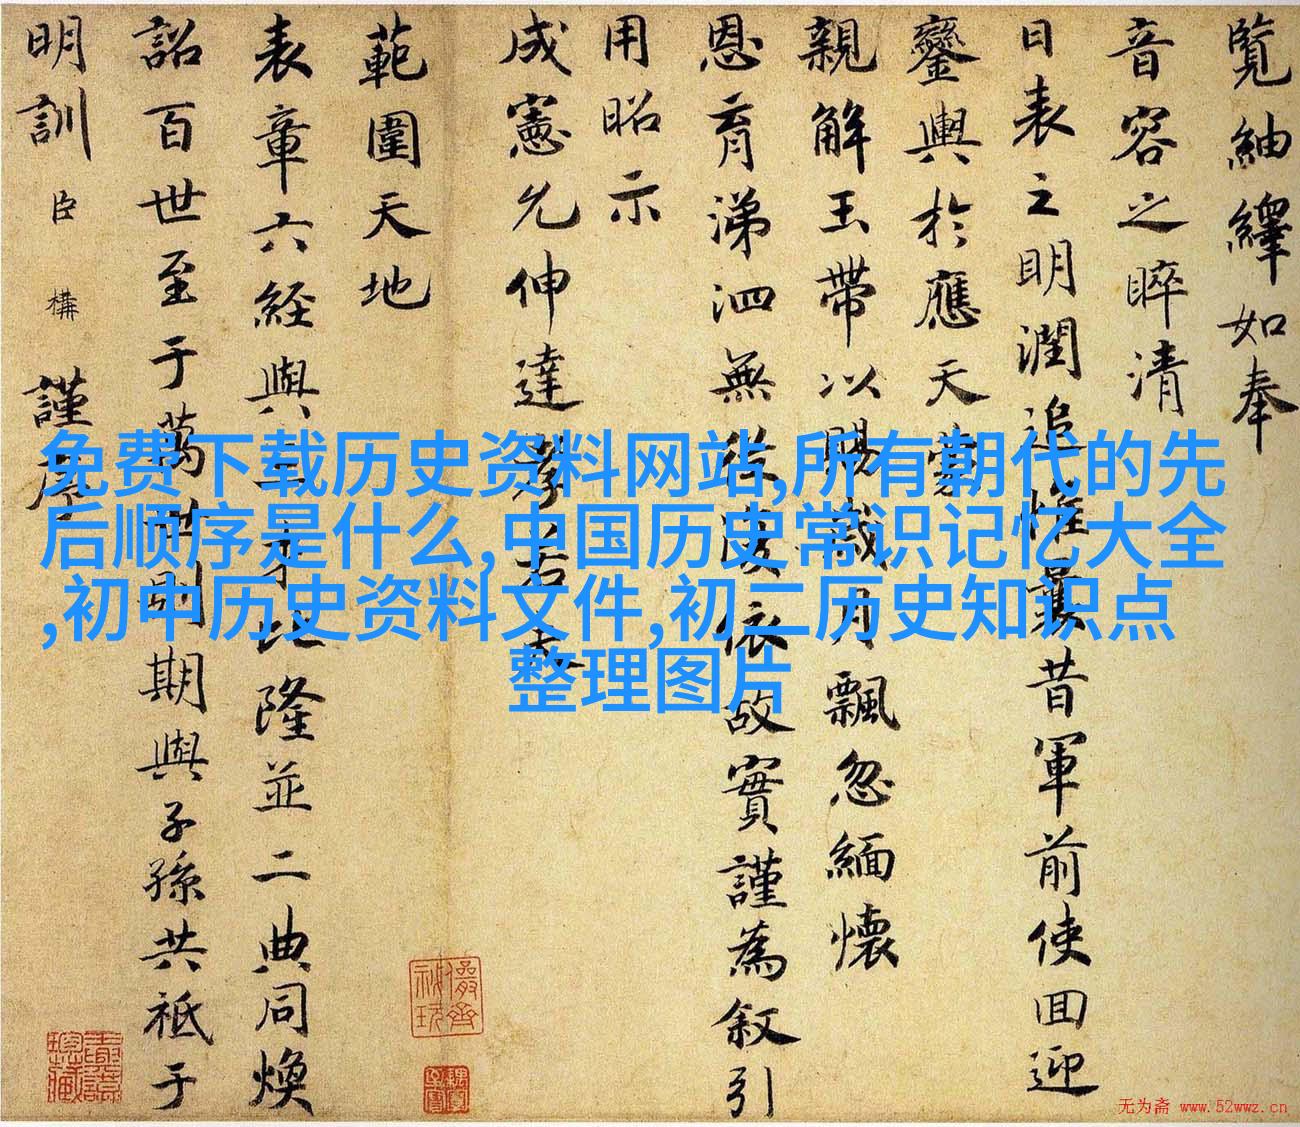 覽紬繹如奉
音容之睟清
日表之明潤追惟曩昔軍前使回迎
鑾輿於應天蒙
親解玉帶以賜歲月飄忽緬懷
恩育涕泗無從依故實謹為叙引
用昭示
成憲允伸達孝若夫
範圍天地
表章六經與三才比隆並二典同煥
詔百世至于萬世則期與子孫共祗于
明訓臣構謹序
免费下载历史资料网站,所有朝代的先
后顺序是什么,中国历史常识记忆大全
,初中历史资料文件,初二历史知识点
整理图片
无为斋 www.52wwz.cn